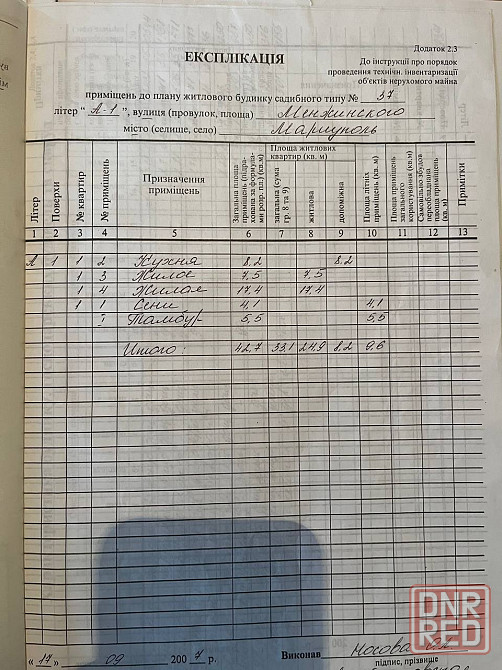 Додаток 2.3
ЕКСПЛІКАЦІЯ
До інструкції про порядок
проведення технічн. інвентаризації
об'єктів нерухомого майна
приміщень до плану житлового будинку садибного типу № 37
літер " А-1 ", вулиця (провулок, площа) Менжинского
місто (селище, село) Мариуполь
Літер Поверхи № квартир № приміщень Призначення приміщень Загальна площа приміщень (підрахована за формулами розр. пл.) (кв.м) Площа житлових квартир (кв. м) загальна (сума гр. 8 та 9) житлова допоміжна Площа літніх приміщень (кв. м) Площа приміщень загального користування (кв.м) Самовільно збудов переобладнана площа приміщень (кв. м) Примітки
1 2 3 4 5 6 7 8 9 10 11 12 13
А 1 1 2 Кухня 8,2 8,2
1 3 Жилое 7,5 7,5
1 4 Жилая 17,4 17,4
1 1 Сени 4,1 4,1
I Тамбур 5,5 5,5
Итого: 42,7 33,1 24,9 8,2 9,6
" 17 " 09 2007 р. Виконав Носова
підпис, прізвище
DNR
RED